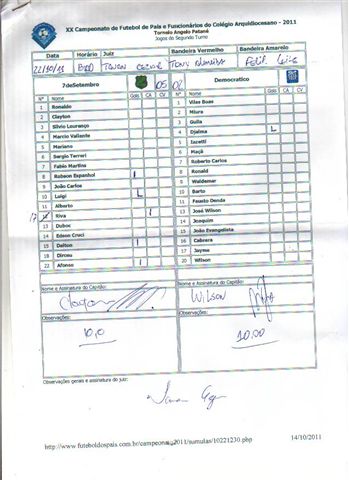 XX Campeonato de Futebol de Pais e Funcionários do Colégio Arquidiocesano - 2011
Torneio Angelo Patané
Jogos do Segundo Turno
Data Horário Juiz Bandeira Vermelho Bandeira Amarelo
22/10/11
7deSetembro 05 02 Democratico
Nº Nome Gols CA CV Nº Nome Gols CA CV
1 Ronaldo 1 Vilas Boas
2 Clayton 2 Miura
3 Silvio Lourenço 3 Guila
4 Marcio Valiante 4 Djalma L
5 Mariano 5 Iazetti
6 Sergio Terreri 6 Maçã
7 Fabio Martins 7 Roberto Carlos
8 Robson Espanhol I 8 Ronald
9 João Carlos 9 Waldemar
10 Luigi L 10 Barto
11 Alberto 11 Fausto Denda
17 Riva I 13 José Wilson
13 Duboc 14 Joaquim
14 Edson Cruci 15 João Evangelista
15 Dalton I 16 Cabrera
18 Dirceu 17 Jayme
22 Afonso I 20 Wilson
Nome e Assinatura do Capitão: Nome e Assinatura do Capitão:
WILSON
Observações: Observações:
10,0 10,00
Observações gerais e assinatura do juiz:
http://www.futeboldospais.com.br/campeonato2011/sumulas/10221230.php 14/10/2011